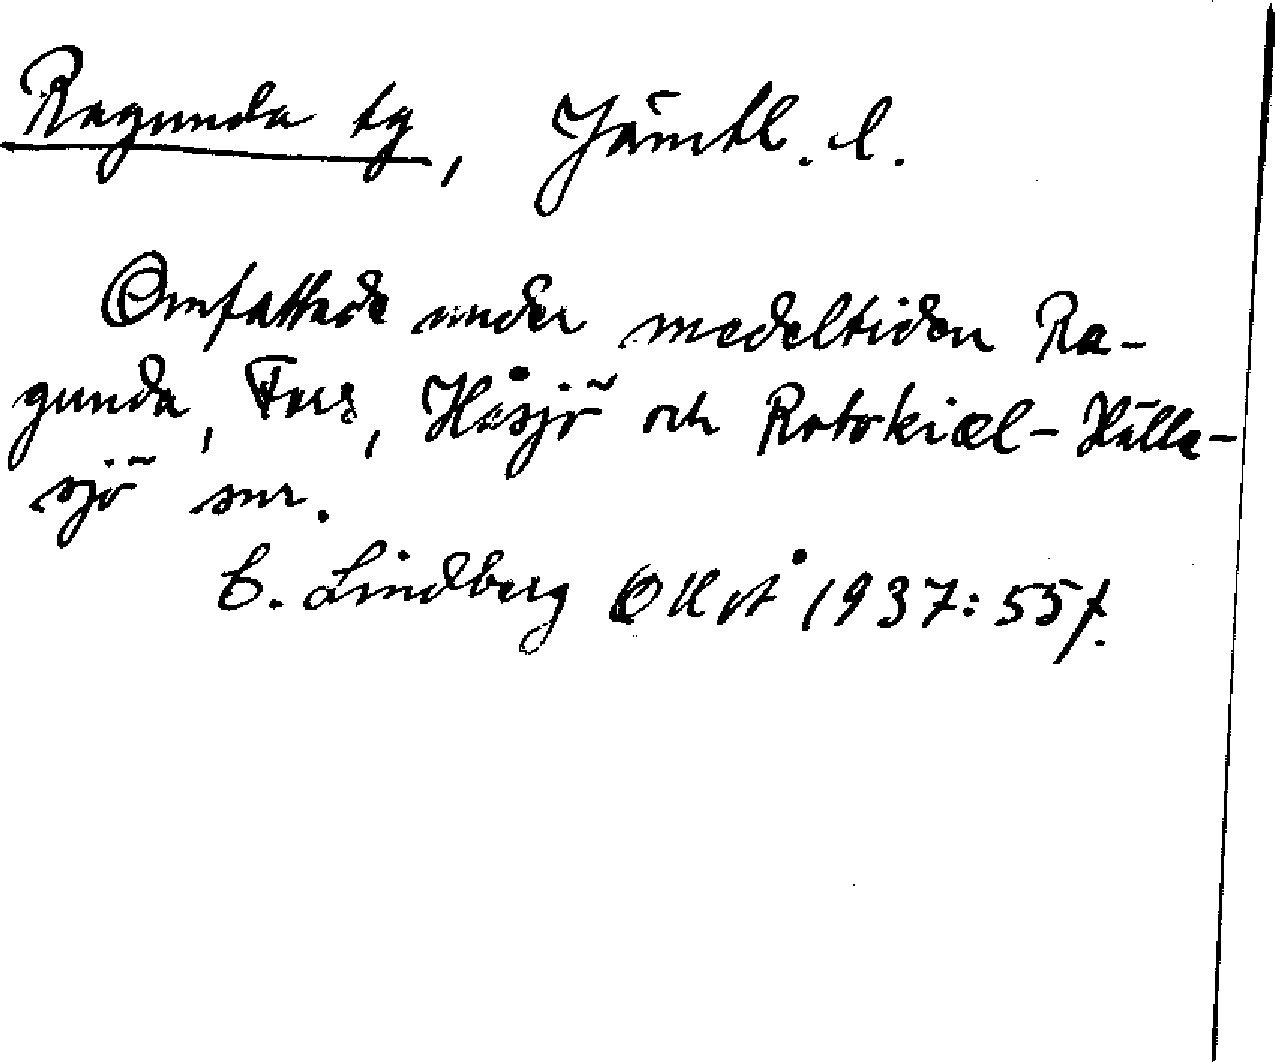 Ragunda tg, Jämtl. l.
Omfattade under medeltiden Ra-
gunda, Fors, Håsjö och Rotokiæl-Hälla-
sjö snr.
C. Lindberg OKåt 1937: 55 f.